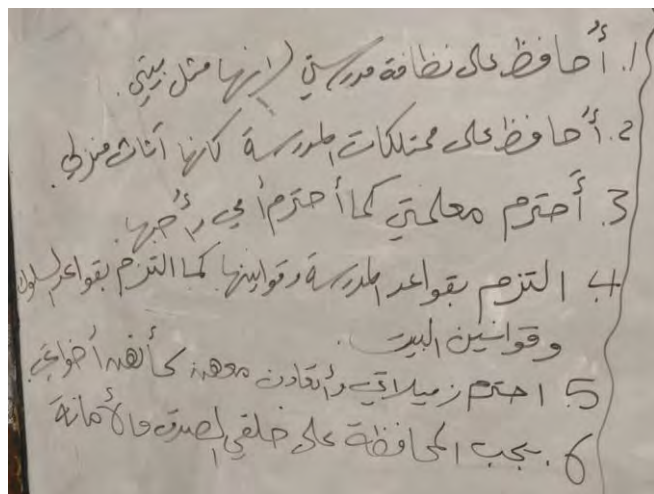 1. أُحافظ على نظافة مدرستي لإنها مثل بيتي.
2. أُحافظ على ممتلكات المدرسة كأنها أثاث منزلي.
3. أحترم معلمتي كما أحترم أمي وأُحبها.
4. التزم بقواعد المدرسة وقوانينها كما التزم بقواعد السلوك
وقوانين البيت.
5. احترم زميلاتي وأتعاون معهن كأنهن أخواتي.
6. يجب المحافظة على خلقي الصدق والأمانة